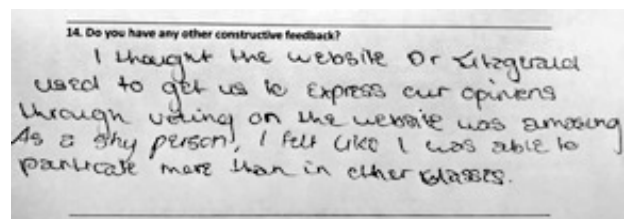 14. Do you have any other constructive feedback?
I thought the website Dr Fitzgerald
used to get us to express our opinions
through voting on the website was amazing
As a shy person, I felt like I was able to
particate more than in other classes.